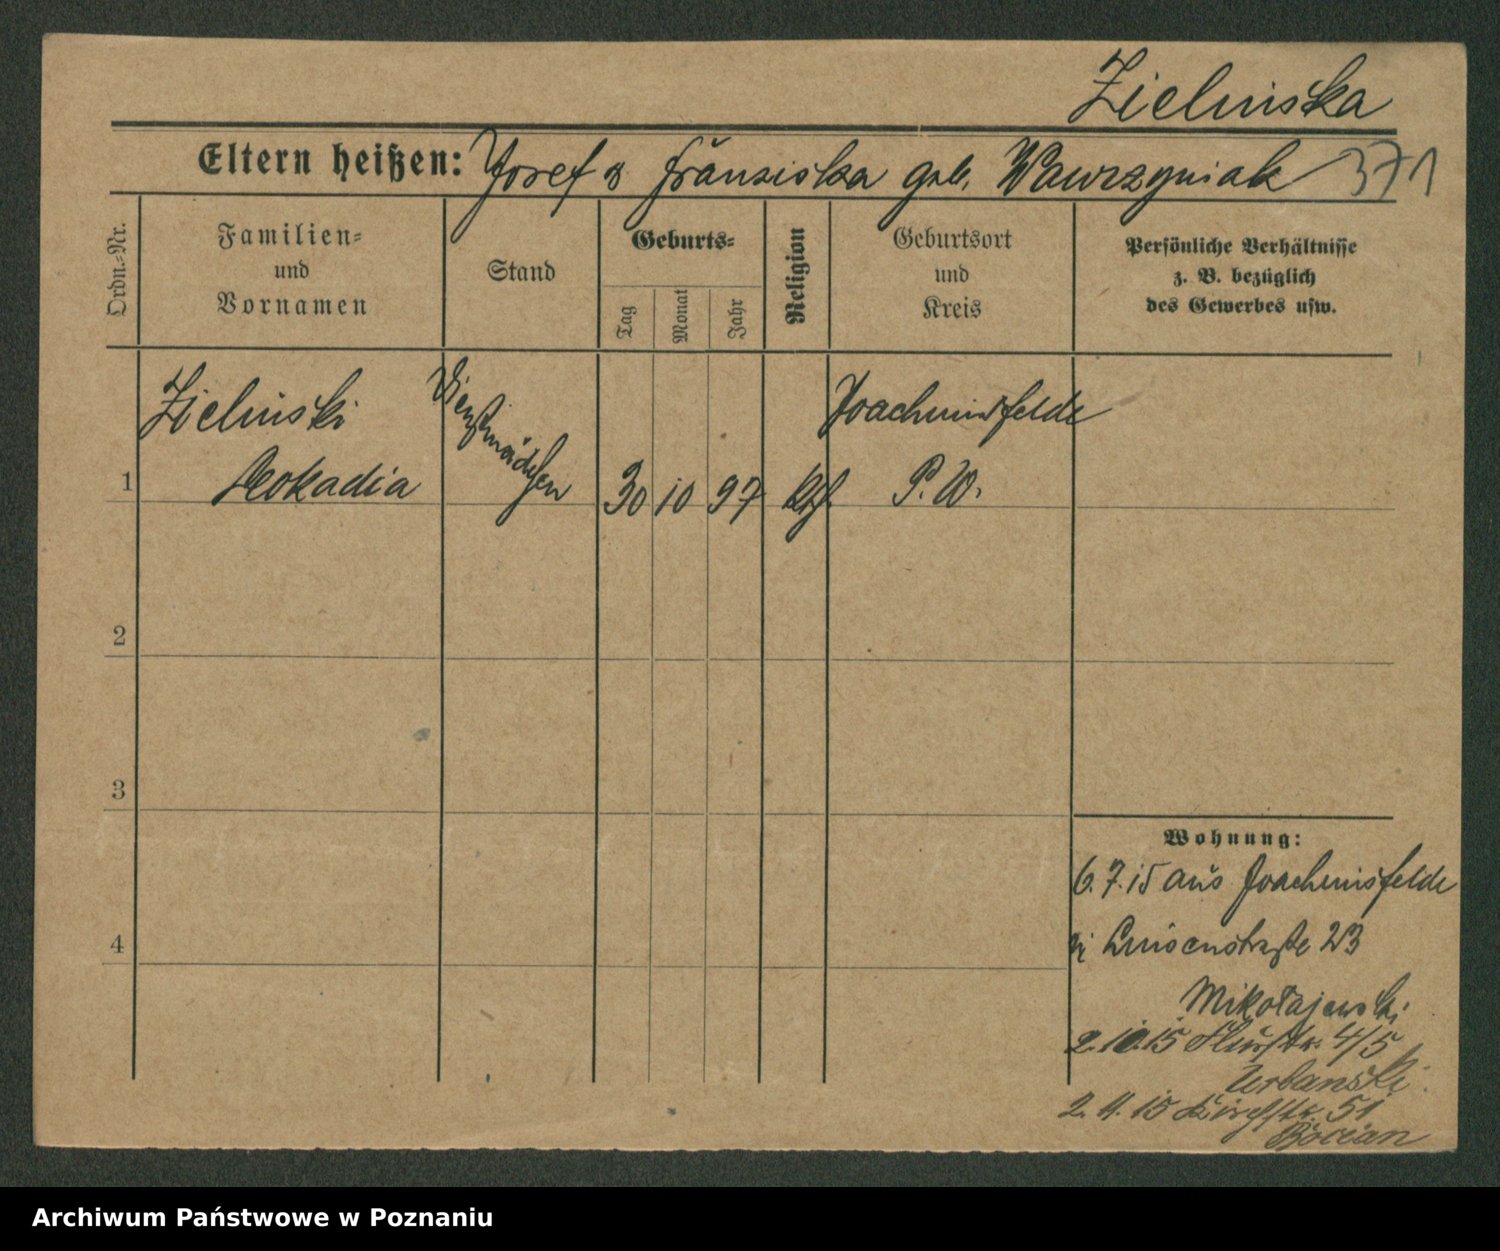 Zielinska
Eltern heißen: Josef & Franziska geb. Wawrzyniak 371
Ordn.-Nr.
Familien-
und
Vornamen
Stand
Geburts-
Tag
Monat
Jahr
Religion
Geburtsort
und
Kreis
Persönliche Verhältnisse
z. B. bezüglich
des Gewerbes usw.
1
Zielinski
Leokadia
Dienstmädchen
30 10 97
kth.
Joachimsfelde
P. W.
2
3
4
Wohnung:
6.7.15 aus Joachimsfelde
Luisenstraße 23
Mikołajewski
2.10.15 4/5
Urbanski
2. 11. 15 Kirchstr. 51
Bocian
Archiwum Państwowe w Poznaniu